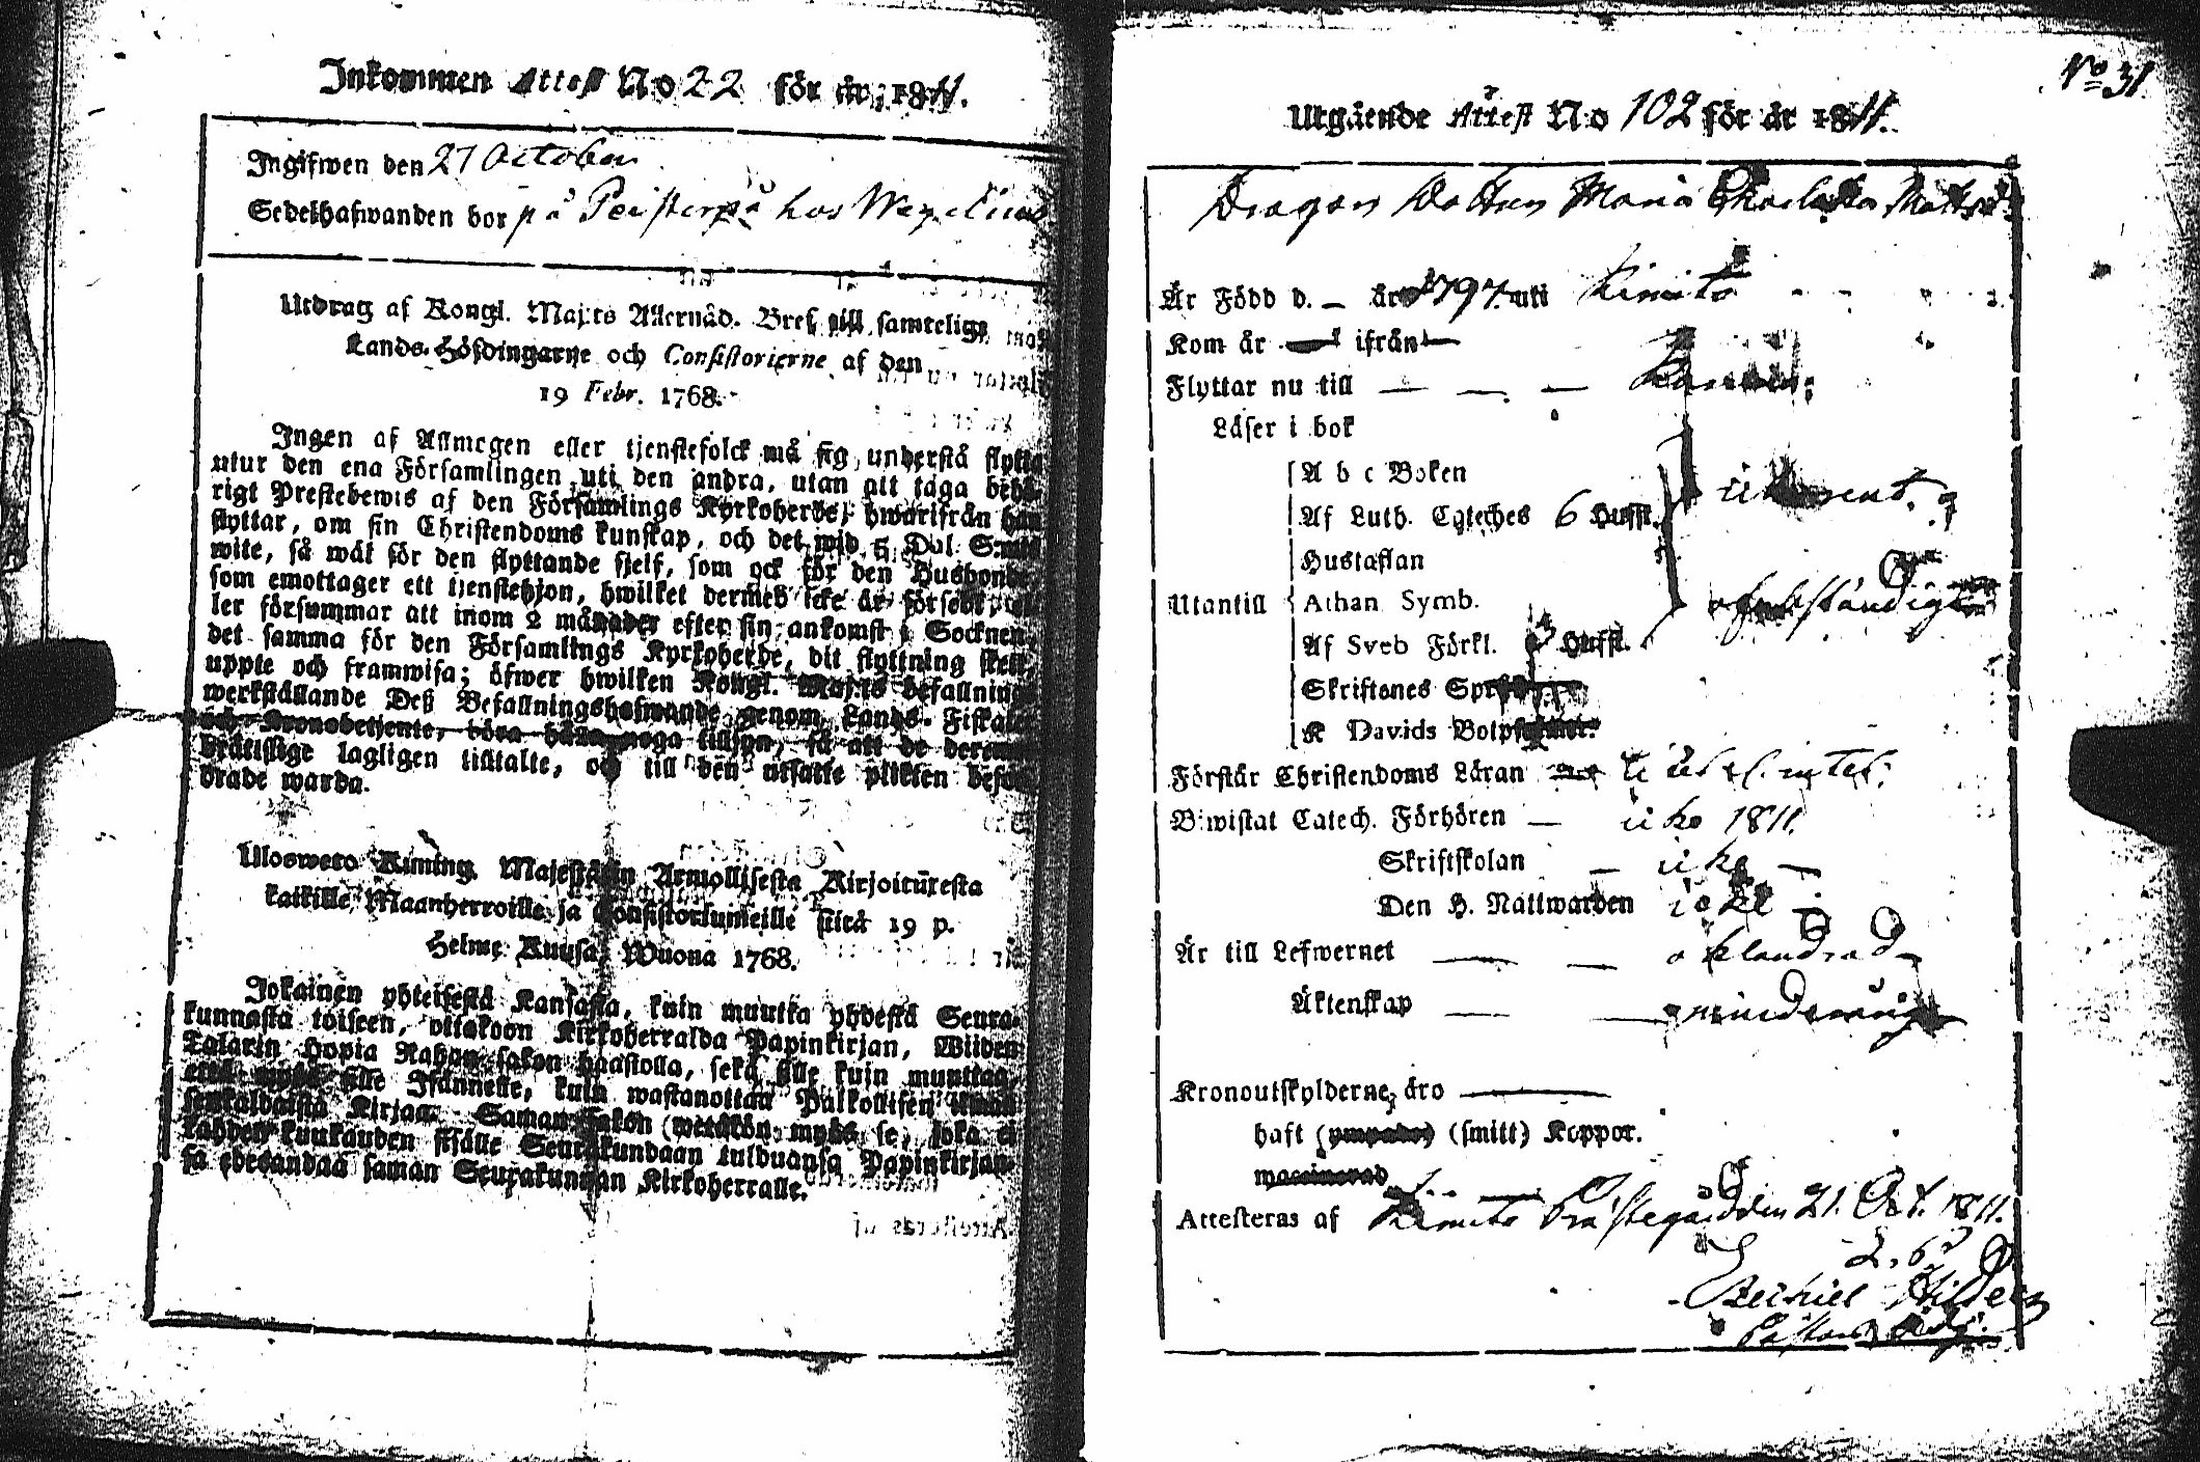 Inkommen Attest No 22 för år 1811.
Ingifwen den 27 October
Sedelhafwanden bor på Peisterpå hos Wegelius
Utdrag af Kongl. Maj:ts Allernåd. Bref till samtelige
Lands-Höfdingarne och Consistorierne af den
19 Febr. 1768.
Ingen af Allmogen eller tjenstefolck må sig understå flytta
utur den ena Församlingen uti den andra, utan att taga behö-
rigt Prestebewis af den Församlings Kyrkoherde, hwarifrån han
flyttar, om sin Christendoms kunskap, och det wid 5 Dal. S:mts
wite, så wäl för den flyttande sjelf, som ock för den Husbonde,
som emottager ett tjenstehjon, hwilket dermed icke är försedt, el-
ler försummar att inom 2 månader efter sin ankomst i Socknen
det samma för den Församlings Kyrkoherde, dit flyttning skett,
uppte och framwisa; öfwer hwilken Kongl. Maj:ts befallnings
werkställande Deß Befallningshafwande genom Lands-Fiskaler
och Kronobetjente, böra hålla noga tillsyn, så att de deremot
brättslige lagligen tilltalte, och till den utsatte plikten beför-
drade warda.
Ulosweto Kuning. Majestätin Armollisesta Kirjoituxesta
kaikille Maanherroille ja Consistoriumeille siitä 19 p.
Helme Kuusa, Wuona 1768.
Jokainen yhteisestä Kansasta, kuin muutta yhdestä Seura-
kunnasta toiseen, ottakoon Kirkoherralda Papinkirjan, Wiiden
Talarin Hopia Rahan sakon haastolla, sekä sille kuin muuttaa,
että myös sille Isännelle, kuin wastanottaa Palkollisen ilman
senkaldaista Kirjaa. Saman sakon (wetäkön myös se, joka ei
kahden kuukauden sisälle Seurakundaan tulduansa Papinkirjan-
sa edesandaa saman Seurakunnan Kirkoherralle.
No 31.
Utgående Attest No 102 för år 1811.
Dragon Dottren Maria Charlotta Matts
Är Född d. – år 1797 uti Kimito
Kom år – ifrån –
Flyttar nu till – – –
Läser i bok
A b c Boken
Af Luth. Cateches 6 Hufst.
Hustaflan
Utantill Athan Symb. ofulständigt
Af Sveb Förkl. Hufst.
Skriftenes Språk
K Davids Botpsalmer.
Förstår Christendoms Läran
Biwistat Catech. Förhören – icke 1811.
Skriftskolan – icke –
Den H. Nattwarden
Är till Lefwernet – – oklandrad
Äktenskap – – minderårig
Kronoutskylderne äro –
haft (ympade) (smitt) Koppor.
vaccinerad
Attesteras af Kimito Prästegård den 21. Oct. 1811.